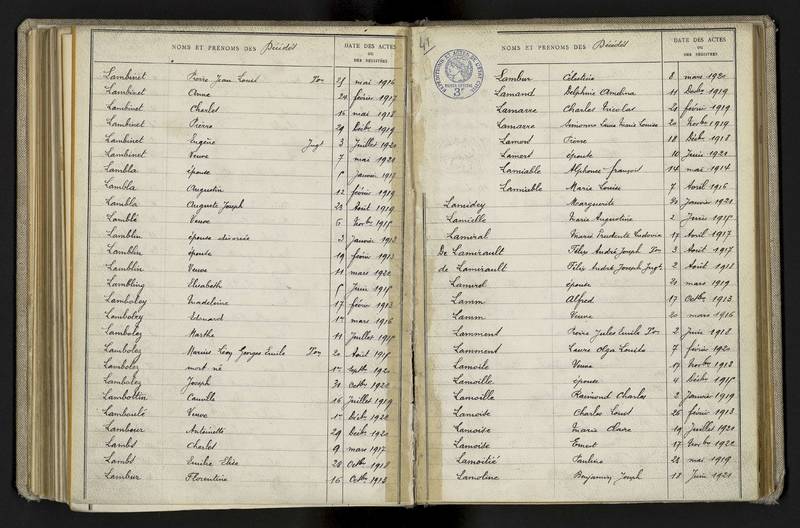 NOMS ET PRÉNOMS DES Décédés DATE DES ACTES OU DES REGISTRES
Lambinet Pierre Jean Louis Ton 25 mai 1916
Lambinet Anne 24 février 1917
Lambinet Charles 16 mai 1918
Lambinet Pierre 29 Décbre 1919
Lambinet Eugène Jugt 3 Juillet 1920
Lambinet Veuve 7 mai 1921
Lambla épouse janvier 1917
Lambla Augustin 12 février 1919
Lambla Auguste Joseph 23 Août 1919
Lamblé Veuve 6 Novbre 1915
Lamblin épouse divorcée 3 Janvier 1913
Lamblin épouse 19 février 1913
Lamblin Veuve 11 mars 1920
Lambling Elisabeth Juin 1915
Lamboley Madeleine 17 février 1913
Lamboley Edouard 1er mars 1916
Lambolez Marthe 11 Juillet 1915
Lambolez Marius Léon Georges Emile Ton 20 Août 1915
Lambolez mort né 1er Septbre 1920
Lambolez Joseph 30 Octbre 1920
Lambottin Camille 16 Juillet 1919
Lamboulé Veuve 1er Décbre 1920
Lambour Antoinette 29 Décbre 1920
Lambs Charles 9 mars 1917
Lambs Emilie Elise 28 Octbre 1918
Lambur Florentine 16 Octbre 1913
41
NOMS ET PRÉNOMS DES Décédés DATE DES ACTES OU DES REGISTRES
Lambur Célestine 8 mars 1920
Lamand Delphine Amélina 11 Décbre 1919
Lamarre Charles Nicolas 20 février 1919
Lamarre Marie Louise 20 Novbre 1919
Lamort Pierre 18 Décbre 1913
Lamort épouse 10 Juin 1921
Lamiable Alphonse françois 14 mai 1914
Lamiable Marie Louise 7 Avril 1916
Lamidey Marguerite 30 Janvier 1921
Lamielle Marie Augustine 2 Juin 1915
Lamiral Marie Prudente Ludovie 17 Avril 1917
De Lamirault Félix André Joseph Ton 3 Août 1917
de Lamirault Félix André Joseph Jugt 2 Août 1918
Lamirel épouse 20 mars 1919
Lamm Alfred 17 Octbre 1913
Lamm Veuve 20 mars 1916
Lamment Pierre Jules Emile Ton 2 Juin 1918
Lamment Laure Olga Louise 7 février 1920
Lamoile Veuve 19 Novbre 1913
Lamoille épouse 4 Décbre 1915
Lamoille Raimond Charles 2 Janvier 1919
Lamoise Charles Louis 26 février 1913
Lamoise Marie Claire 19 Juillet 1921
Lamoise Ernest 17 Novbre 1922
Lamoitié Pauline 23 mai 1919
Lamoline Benjamin Joseph 18 Juin 1921